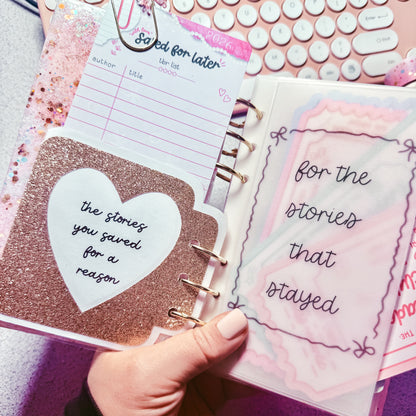 2026
Saved for later
tbr list
author
title
the stories
you saved
for a
reason
for the
stories
that
stayed